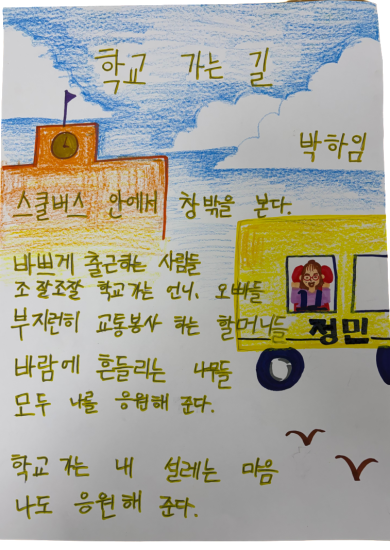 학교 가는 길
박하임
스쿨버스 안에서 창밖을 본다.
바쁘게 출근하는 사람들
조잘조잘 학교가는 언니, 오빠들
부지런히 교통봉사 하는 할머니들
정민
바람에 흔들리는 나무들
모두 나를 응원해 준다.
학교 가는 내 설레는 마음
나도 응원해 준다.